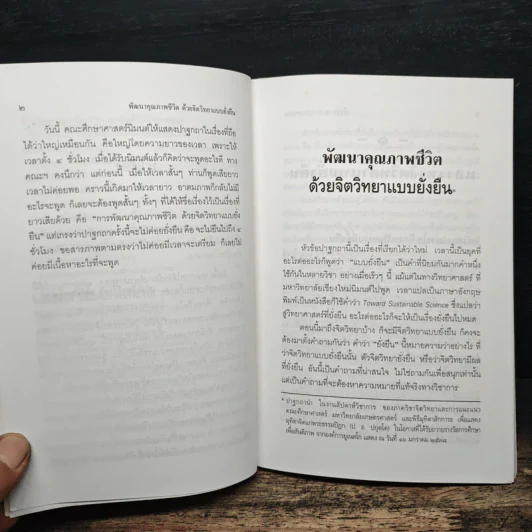 ๒
พัฒนาคุณภาพชีวิต ด้วยจิตวิทยาแบบยั่งยืน
วันนี้ คณะศึกษาศาสตร์นิมนต์ให้แสดงปาฐกถาในเรื่องที่ถือ
ได้ว่าใหญ่เหมือนกัน คือใหญ่โดยความยาวของเวลา เพราะให้
เวลาตั้ง ๔ ชั่วโมง เมื่อได้รับนิมนต์แล้วก็คิดว่าจะพูดอะไรดี ทาง
คณะฯ คงนึกว่า แต่ก่อนนี้ เมื่อให้เวลาสั้นๆ ท่านก็พูดเสียยาว
เวลาไม่ค่อยพอ คราวนี้เกิดมาให้เวลายาว อาตมภาพก็กลับไม่มี
อะไรจะพูด ก็เลยจะต้องพูดสั้นๆ ทั้งๆ ที่ได้ให้ชื่อเรื่องไว้เป็นเรื่องที่
ยาวเสียด้วย คือ “การพัฒนาคุณภาพชีวิต ด้วยจิตวิทยาแบบยั่ง
ยืน” แต่เกรงว่าปาฐกถาครั้งนี้จะไม่ค่อยยั่งยืน คือ จะไม่ยืนไปถึง ๔
ชั่วโมง ขอสารภาพตามตรงว่าไม่ค่อยมีเวลาจะเตรียม ก็เลยไม่
ค่อยมีเนื้อหาอะไรที่จะพูด
พัฒนาคุณภาพชีวิต
ด้วยจิตวิทยาแบบยั่งยืน*
หัวข้อปาฐกถานี้เป็นเรื่องที่เรียกได้ว่าใหม่ เวลานี้เป็นยุคที่
อะไรต่ออะไรก็พูดว่า “แบบยั่งยืน” เป็นคำที่นิยมกันมากคำหนึ่ง
ใช้กันในหลายวิชา อย่างเมื่อเร็วๆ นี้ แม้แต่ในทางวิทยาศาสตร์ ที่
มหาวิทยาลัยเชียงใหม่นิมนต์ไปพูด เวลาแปลเป็นภาษาอังกฤษ
พิมพ์เป็นหนังสือก็ใช้คำว่า Toward Sustainable Science ซึ่งแปลว่า
สู่วิทยาศาสตร์ที่ยั่งยืน อะไรต่ออะไรก็จะให้เป็นเรื่องยั่งยืนไปหมด
ตอนนี้มาถึงจิตวิทยาบ้าง ก็จะมีจิตวิทยาแบบยั่งยืน ก็คงจะ
ต้องมาตั้งคำถามกันว่า คำว่า “ยั่งยืน” นี้หมายความว่าอย่างไร ที่
ว่าจิตวิทยาแบบยั่งยืนนั้น ตัวจิตวิทยายั่งยืน หรือว่าจิตวิทยามีผล
ที่ยั่งยืน อันนี้เป็นคำถามที่น่าสนใจ ไม่ใช่ถามกันเพื่อสนุกเท่านั้น
แต่เป็นคำถามที่จะต้องหาความหมายที่แท้จริงทางวิชาการ
* ปาฐกถานำ ในงานสัปดาห์วิชาการ ของภาควิชาจิตวิทยาและการแนะแนว
คณะศึกษาศาสตร์ มหาวิทยาลัยเกษตรศาสตร์ และพิธีมุทิตาสักการะ เพื่อแสดง
มุทิตาจิตแด่พระธรรมปิฎก (ป. อ. ปยุตฺโต) ในโอกาสที่ได้รับถวายรางวัลการศึกษา
เพื่อสันติภาพ จากองค์การยูเนสโก แสดง ณ วันที่ ๑๖ มกราคม ๒๕๓๘